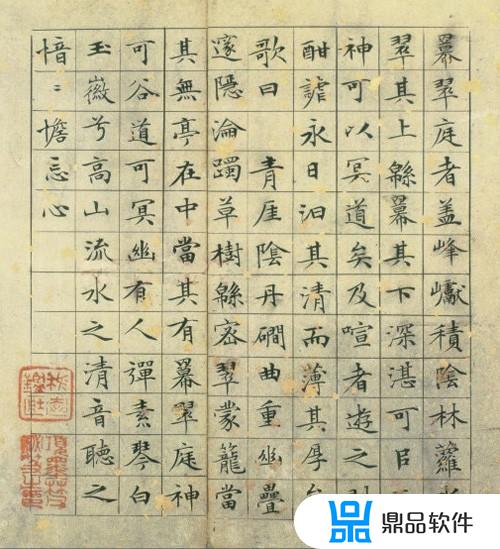 羃翠庭者盖峰巘積陰林蘿
翠其上緜羃其下深湛可㠯
神可以冥道矣及喧者遊之
酣謔永日汩其清而薄其厚
歌曰 青厓陰丹磵曲重幽疊
邃隱淪躅草樹緜密翠蒙籠當
其無亭在中當其有羃翠庭神
可谷道可冥幽有人彈素琴白
玉徽兮高山流水之清音聽之
愔〻憺忘心
鼎品软件